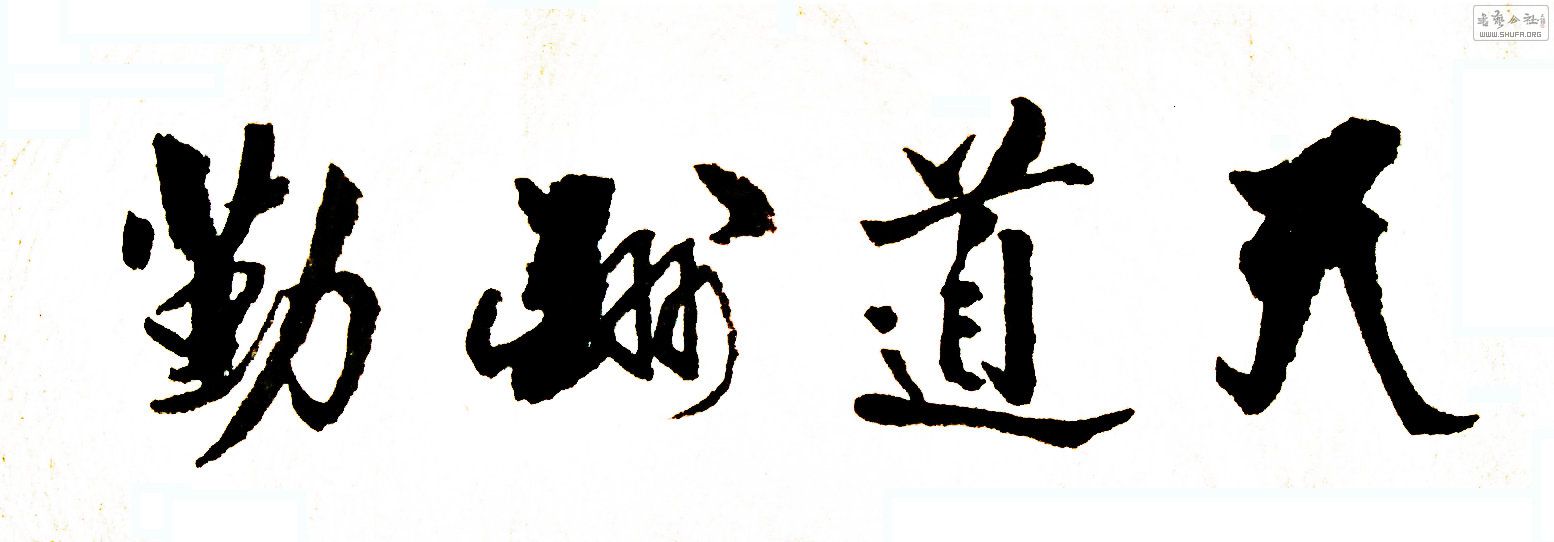 天道酬勤
书艺公社
WWW.SHUFA.ORG